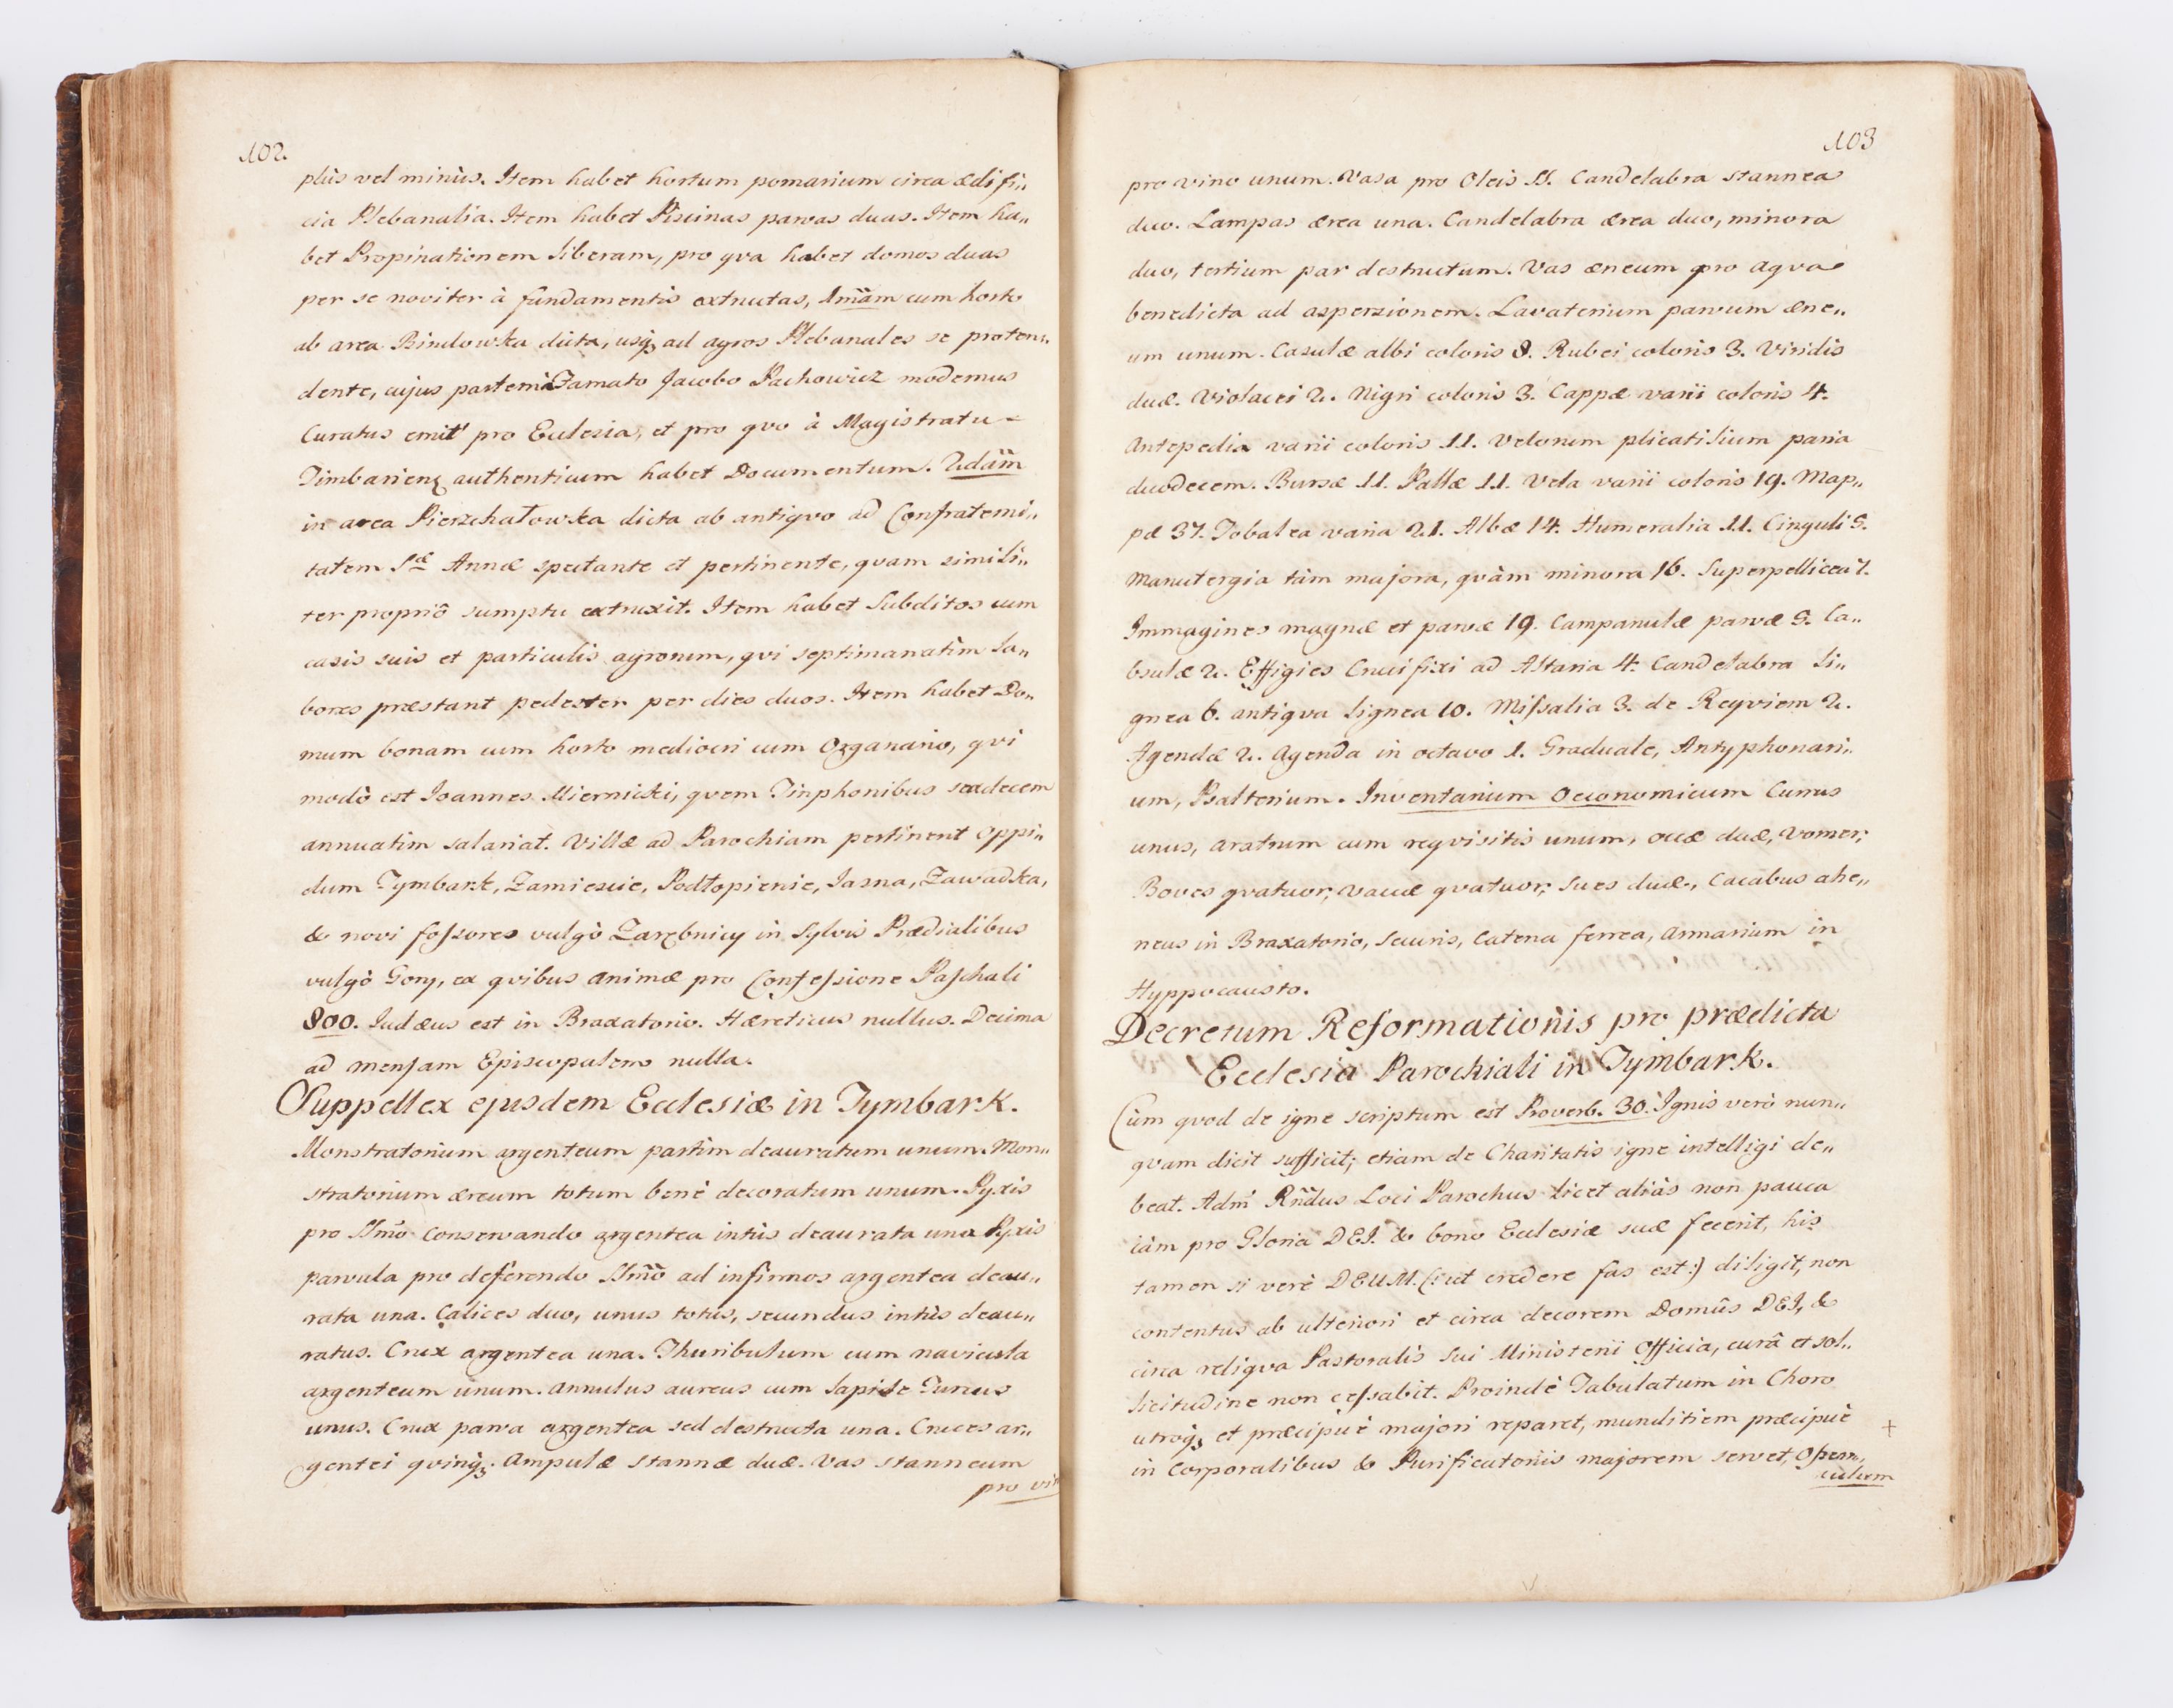 102.
plùs vel minùs. Item habet hortum pomarium circa ædifi„
cia Plebanalia. Item habet Piscinas parvas duas. Item ha„
bet Propinationem liberam, pro qva habet domos duas
per se noviter à fundamentis extructas, 1mãm cum horto
ab area Bindowka dicta, usq; ad agros Plebanales se proten„
dente, cujus partem à Famato Jacobo Pachowicz modernus
Curatus emit pro Ecclesia, et pro qvo à Magistratu
Timbarienȝ authenticum habet Documentum. 2dãm
in area Pierzchałowka dicta ab antiqvo ad Confraterni„
tatem Sæ Annæ spectante et pertinente, qvam simili„
ter propriô sumptu extruxit. Item habet Subditos cum
casis suis et particulis agrorum, qvi septimanatìm la„
bores præstant pedester per dies duos. Item habet Do„
mum bonam cum horto mediocri cum Organario, qvi
modò est Joannes Miernicki, qvem Tinphonibus sexdecem
annuatim salariat. Villæ ad Parochiam pertinent Oppi„
dum Tymbark, Zamiescie, Podłopienie, Jasna, Zawadka,
& novi fossores vulgò Zarębnicy in Sylvis Prædialibus
vulgò Gory, ex qvibus animæ pro Confessione Paschali
800. Judæus est in Braxatorio. Hæreticus nullus. Decima
ad mensam Episcopalem nulla.
Suppellex ejusdem Ecclesiæ in Tymbark.
Monstratorium argenteum partìm deauratum unum. Mon„
stratorium æreum totum benè decoratum unum. Pyxis
pro SSmõ conservando argentea intùs deaurata una Pyxis
parvula pro deferendo SSmõ ad infirmos argentea deau„
rata una. Calices duo, unus totus, secundus intùs deau„
ratus. Crux argentea una. Thuribulum cum navicula
argenteum unum. Annulus aureus cum lapide Turcus
unus. Crux parva argentea sed destructa una. Cruces ar„
gentei qvinq;. Ampulæ stannæ duæ. Vas stanneum
pro vin
103
pro vino unum. Vasa pro Oleis SS. Candelabra stannea
duo. Lampas ærea una. Candelabra ærea duo, minora
duo, tertium par destructum. Vas æneum pro Aqva
benedicta ad asperzionem. Lavaterium parvum æne„
um unum. Casulæ albi coloris 8. Rubei coloris 3. Viridis
duæ. Violacei 2. Nigri coloris 3. Cappæ varii coloris 4.
Antepedia varii coloris 11. Velorum plicatilium paria
duodecem. Bursæ 11. Pallæ 11. Vela varii coloris 19. Map„
pæ 37. Tobalea varia 21. Albæ 14. Humeralia 11. Cinguli 5.
Manutergia tàm majora, qvàm minora 16. Superpellicea 7.
Immagines magnæ et parvæ 19. Campanulæ parvæ 5. Ca„
bsulæ 2. Effigies Crucifixi ad Altaria 4. Candelabra li„
gnea 6. antiqva lignea 10. Missalia 3. de Reqviem 2.
Agendæ 2. Agenda in octavo 1. Graduale, Antyphonari„
um, Psalterium. Inventarium Oeconomicum Currus
unus, aratrum cum reqvisitis unum, occæ duæ, Vomer;
Boves qvatuor; Vaccæ qvatuor; Sues duæ, Cacabus ahe„
neus in Braxatorio, Securis, Catena ferrea, Armarium in
Hyppocausto.
Decretum Reformationis pro prædicta
Ecclesia Parochiali in Tymbark.
Cùm qvod de igne scriptum est Proverb. 30. Ignis verò nun„
qvam dicit sufficit; etiam de Charitatis igne intelligi de„
beat. Adm̃ Rñdus Loci Parochus licet aliàs non pauca
iàm pro Gloria DEI. & bono Ecclesiæ suæ fecerit, his
tamen si verè DEUM. (: ut credere fas est :) diligit, non
contentus ab ulteriori et circa decorem Domûs DEI, &
circa reliqva Pastoralis Sui Ministerii Officia, curâ et sol„
licitudine non cessabit. Proindè Tabulatum in Choro
utroq; et præcipuè majori reparet, munditiem præcipuè +
in Corporalibus & Purificatoriis majorem servet, Oper„
culum